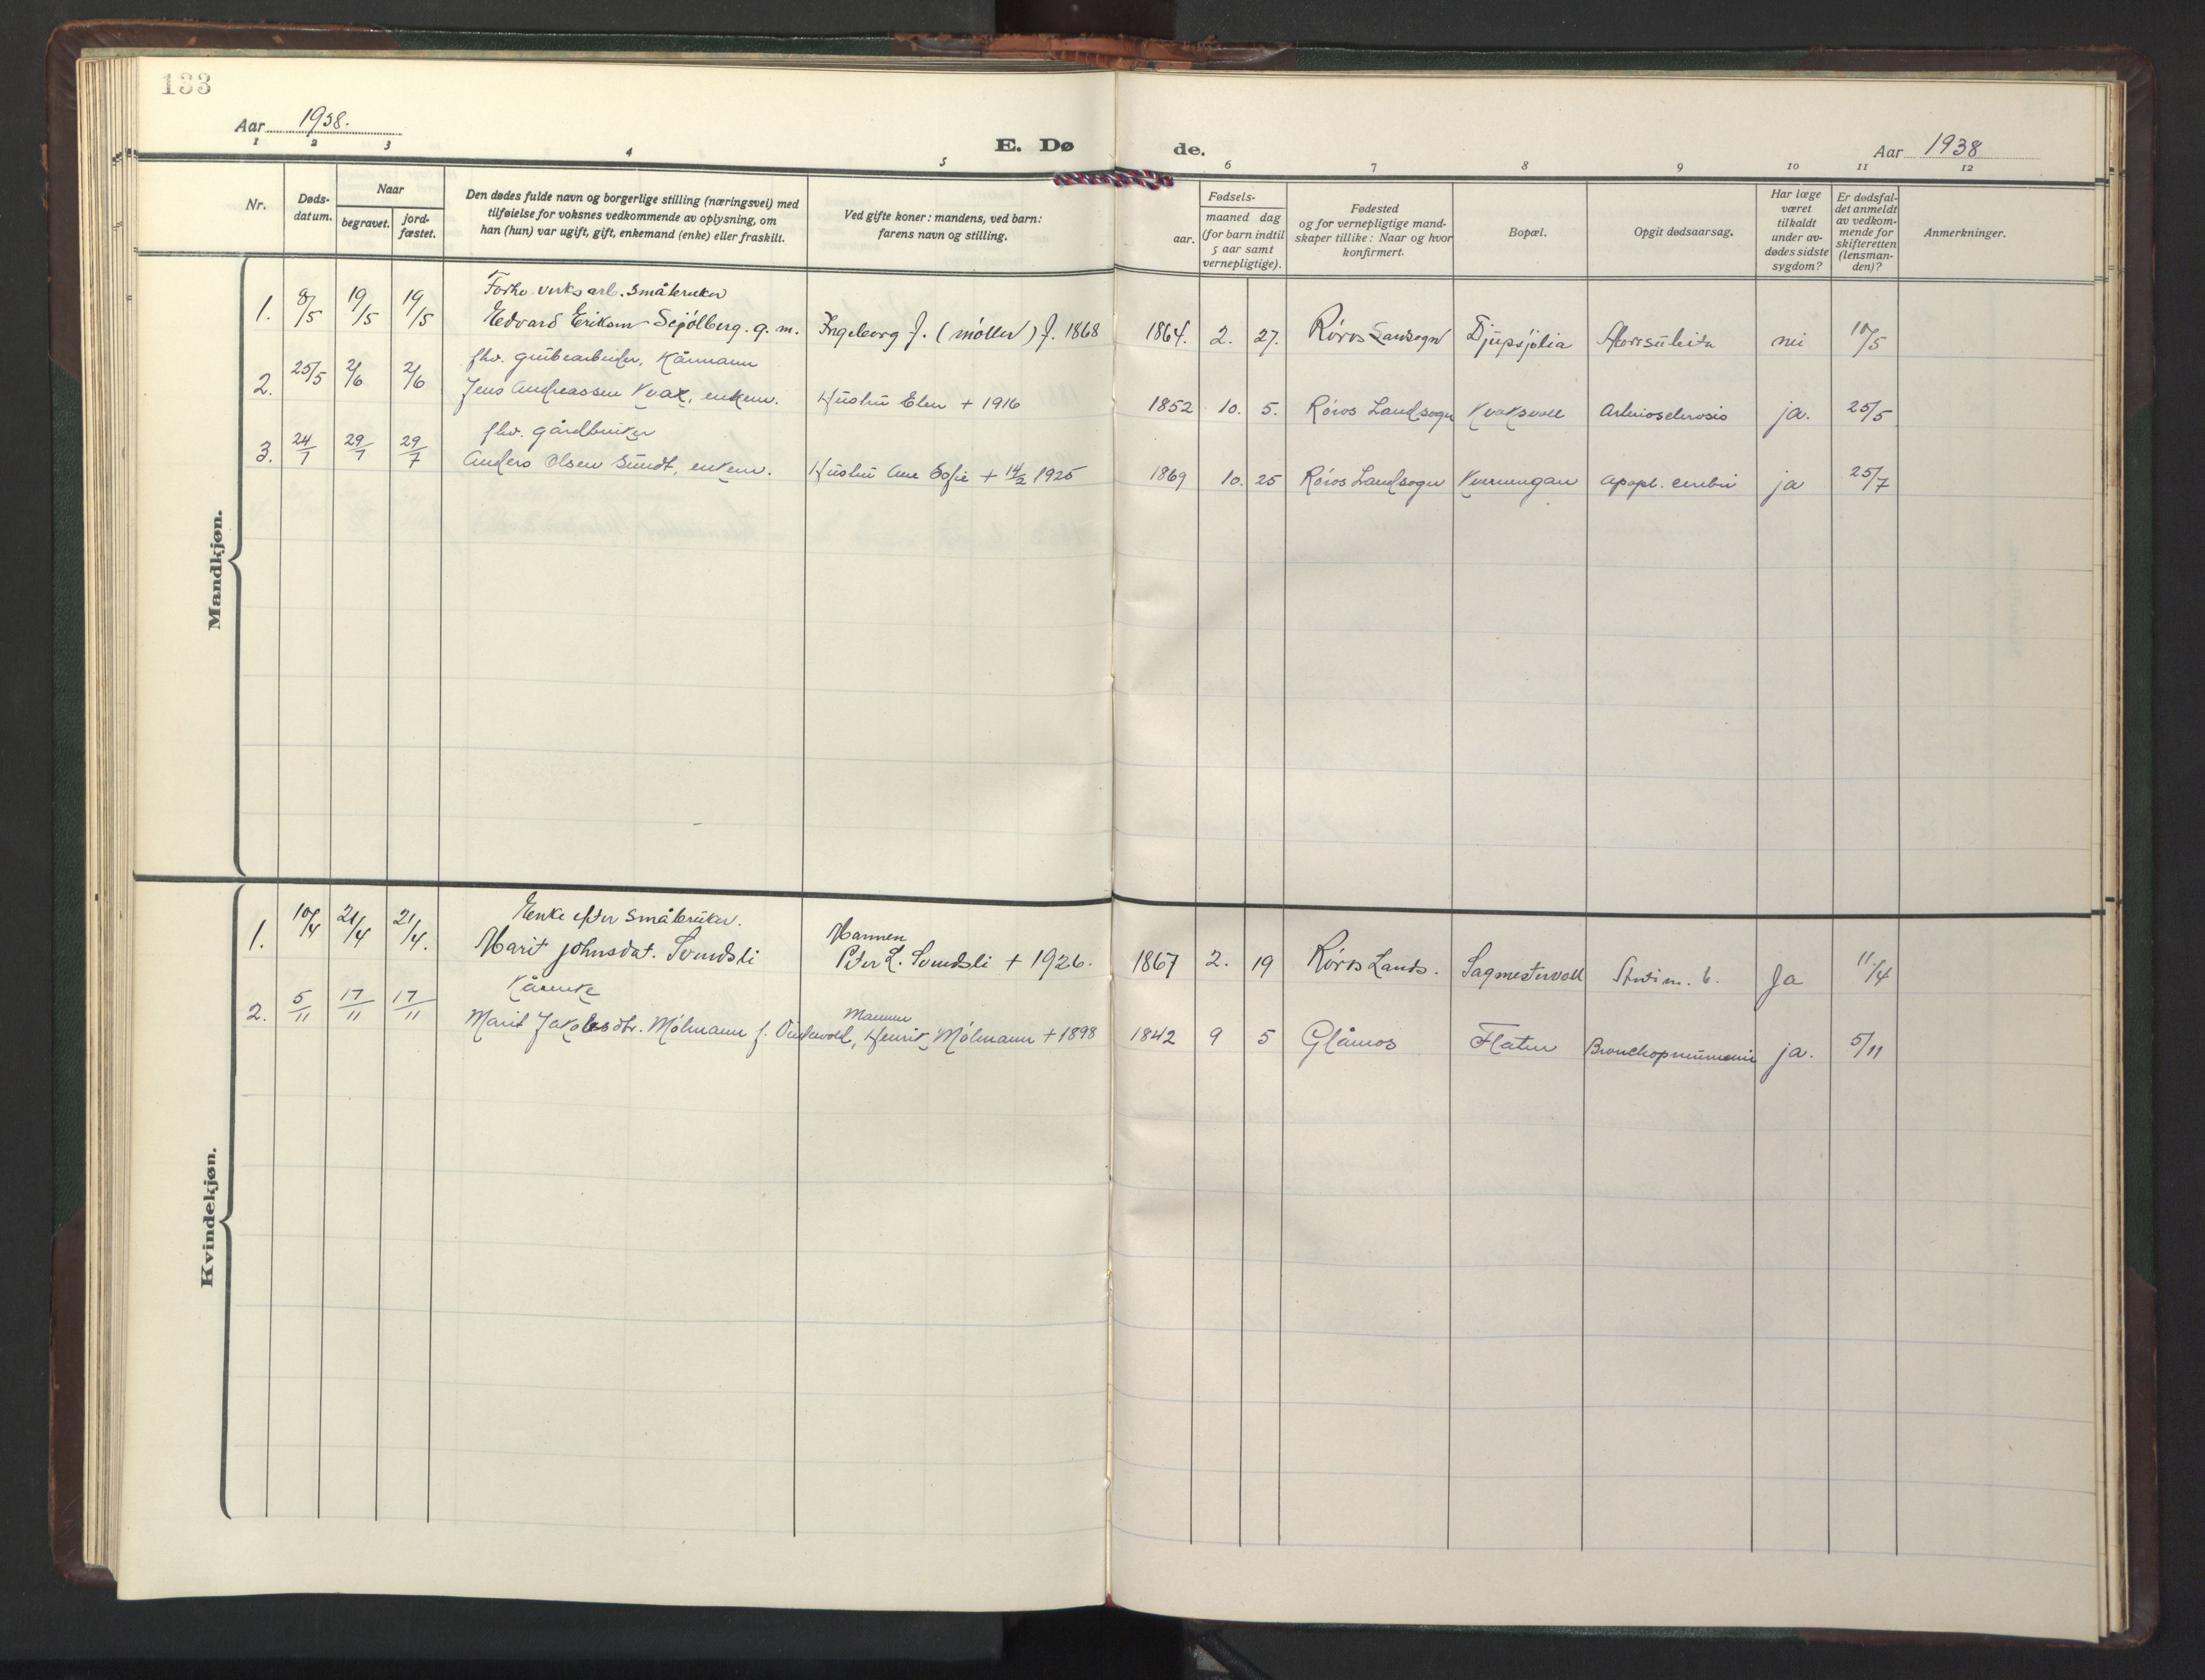 133
Aar 1938.
E. Døde.
Aar 1938
1 2 3 4 5 6 7 8 9 10 11 12
Nr.
Døds-
datum.
Naar
begravet.
jord-
fæstet.
Den dødes fulde navn og borgerlige stilling (næringsvei) med
tilføielse for voksnes vedkommende av oplysning, om
han (hun) var ugift, gift, enkemand (enke) eller fraskilt.
Ved gifte koner: mandens, ved barn:
farens navn og stilling.
Fødsels-
aar.
maaned dag
(for barn indtil
5 aar samt
vernepligtige).
Fødested
og for vernepligtige mand-
skaper tillike: Naar og hvor
konfirmert.
Bopæl.
Opgit dødsaarsag.
Har læge
været
tilkaldt
under av-
dødes sidste
sygdom?
Er dødsfal-
det anmeldt
av vedkom-
mende for
skifteretten
(lensman-
den)?
Anmerkninger.
Mandkjøn.
Forhv verksarb. småbruker
1. 8/5 19/5 19/5 Edvard Eriksen g. m. Ingeborg f. (møller) f. 1868 1864. 2. 27. Røros Landsogn Djupsjølia nei 10/5
fhv. grubearbeider, Kårmann
2. 25/5 2/6 2/6 Jens Andreassen Kvax, enkem. Hustru Elen + 1916 1852 10. 5. Røros Landsogn Kvaksvoll Arteriosclerosis ja. 25/5
fhv. gårdbruker
3. 24/7 29/7 29/7 Anders Olsen Sundt, enkem. Hustru Ane Sofie + 14/2 1925 1869 10. 25 Røros Landsogn apopl. cerebri ja 25/7
Kvindekjøn.
Enke efter småbruker.
Mannen
1. 10/4 21/4 21/4. Marit Johnsdat. Svendsli Peter L. Svendsli + 1926. 1867 2. 19 Røros Lands. Sagmestervoll Ja 11/4
Kårenke
Mannen
2. 5/11 17/11 17/11 Marit Jakobsdtr. Mølmann f. Henrik Mølmann + 1898 1842 9 5 Glåmos Flaten Bronchopneumoni ja. 5/11